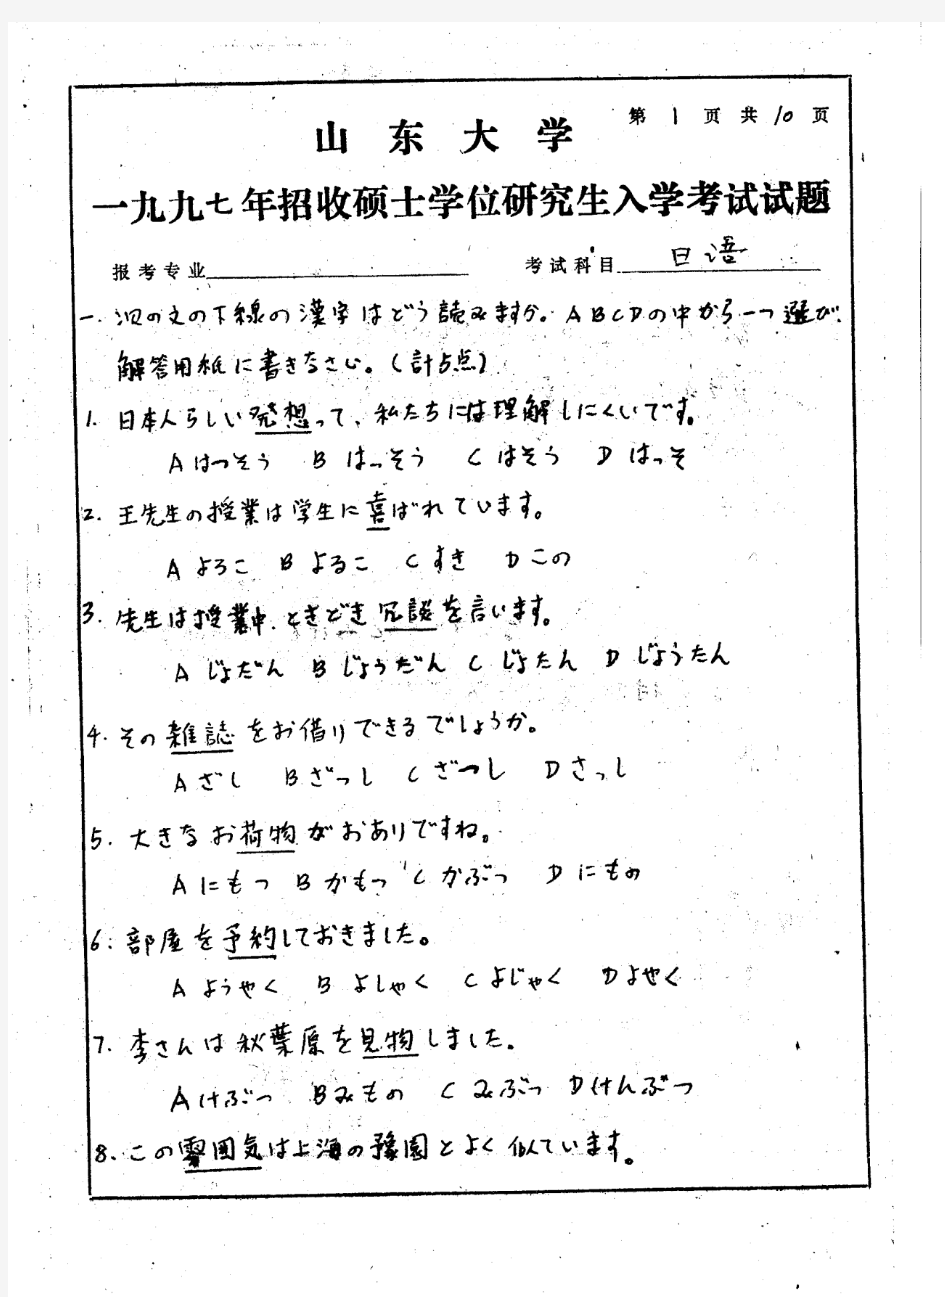 第 1 页 共 10 页
山东大学
一九九七年招收硕士学位研究生入学考试试题
报考专业 考试科目 日语
一. 次の文の下線の漢字はどう読みますか。ABCDの中から一つ選び、
解答用紙に書きなさい。(計5点)
1. 日本人らしい発想って、私たちには理解しにくいです。
A はつそう B はっそう C はそう D はっそ
2. 王先生の授業は学生に喜ばれています。
A よろこ B よるこ C すき D この
3. 先生は授業中、ときどき冗談を言います。
A じょだん B じょうだん C じょたん D じょうたん
4. その雑誌をお借りできるでしょうか。
A ざし B ざっし C ざつし D さっし
5. 大きなお荷物がおありですね。
A にもつ B かもつ C かぶつ D にもの
6. 部屋を予約しておきました。
A ようやく B よしゃく C よじゃく D よやく
7. 李さんは秋葉原を見物しました。
A けぶつ B みもの C みぶつ D けんぶつ
8. この雰囲気は上海の豫園とよく似ています。